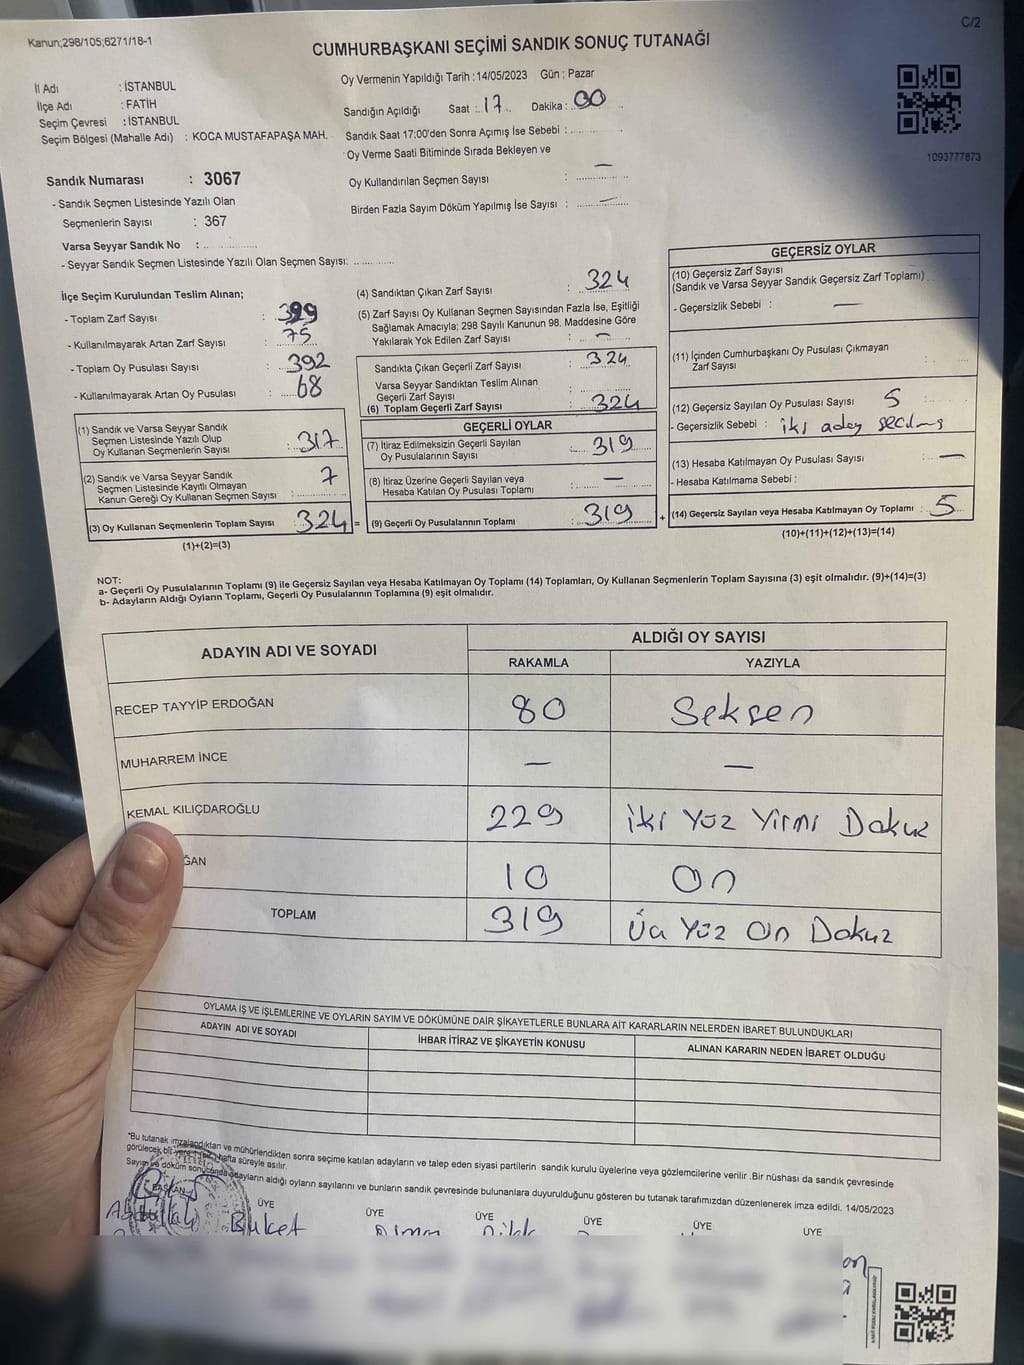 Kanun;298/105;6271/18-1
C/2
CUMHURBAŞKANI SEÇİMİ SANDIK SONUÇ TUTANAĞI
İl Adı : İSTANBUL
İlçe Adı : FATİH
Seçim Çevresi : İSTANBUL
Seçim Bölgesi (Mahalle Adı) : KOCA MUSTAFAPAŞA MAH.
Oy Vermenin Yapıldığı Tarih : 14/05/2023 Gün : Pazar
Sandığın Açıldığı Saat : 17 Dakika : 00
Sandık Saat 17:00'den Sonra Açımış İse Sebebi :
Oy Verme Saati Bitiminde Sırada Bekleyen ve
Oy Kullandırılan Seçmen Sayısı : —
Birden Fazla Sayım Döküm Yapılmış İse Sayısı : —
1093777873
Sandık Numarası : 3067
- Sandık Seçmen Listesinde Yazılı Olan
Seçmenlerin Sayısı : 367
Varsa Seyyar Sandık No :
- Seyyar Sandık Seçmen Listesinde Yazılı Olan Seçmen Sayısı:
İlçe Seçim Kurulundan Teslim Alınan;
- Toplam Zarf Sayısı : 399
- Kullanılmayarak Artan Zarf Sayısı : 75
- Toplam Oy Pusulası Sayısı : 392
- Kullanılmayarak Artan Oy Pusulası : 68
(1) Sandık ve Varsa Seyyar Sandık
Seçmen Listesinde Yazılı Olup
Oy Kullanan Seçmenlerin Sayısı : 317
(2) Sandık ve Varsa Seyyar Sandık
Seçmen Listesinde Kayıtlı Olmayan
Kanun Gereği Oy Kullanan Seçmen Sayısı : 7
(3) Oy Kullanan Seçmenlerin Toplam Sayısı : 324 =
(1)+(2)=(3)
(4) Sandıktan Çıkan Zarf Sayısı : 324
(5) Zarf Sayısı Oy Kullanan Seçmen Sayısından Fazla İse, Eşitliği
Sağlamak Amacıyla; 298 Sayılı Kanunun 98. Maddesine Göre
Yakılarak Yok Edilen Zarf Sayısı : —
Sandıkta Çıkan Geçerli Zarf Sayısı : 324
Varsa Seyyar Sandıktan Teslim Alınan
Geçerli Zarf Sayısı :
(6) Toplam Geçerli Zarf Sayısı : 324
GEÇERLİ OYLAR
(7) İtiraz Edilmeksizin Geçerli Sayılan
Oy Pusulalarının Sayısı : 319
(8) İtiraz Üzerine Geçerli Sayılan veya
Hesaba Katılan Oy Pusulası Toplamı : —
(9) Geçerli Oy Pusulalarının Toplamı : 319 +
GEÇERSİZ OYLAR
(10) Geçersiz Zarf Sayısı
(Sandık ve Varsa Seyyar Sandık Geçersiz Zarf Toplamı)
- Geçersizlik Sebebi : —
(11) İçinden Cumhurbaşkanı Oy Pusulası Çıkmayan
Zarf Sayısı :
(12) Geçersiz Sayılan Oy Pusulası Sayısı : 5
- Geçersizlik Sebebi : iki aday seçilmiş
(13) Hesaba Katılmayan Oy Pusulası Sayısı : —
- Hesaba Katılmama Sebebi :
(14) Geçersiz Sayılan veya Hesaba Katılmayan Oy Toplamı : 5
(10)+(11)+(12)+(13)=(14)
NOT:
a- Geçerli Oy Pusulalarının Toplamı (9) ile Geçersiz Sayılan veya Hesaba Katılmayan Oy Toplamı (14) Toplamları, Oy Kullanan Seçmenlerin Toplam Sayısına (3) eşit olmalıdır. (9)+(14)=(3)
b- Adayların Aldığı Oyların Toplamı, Geçerli Oy Pusulalarının Toplamına (9) eşit olmalıdır.
ADAYIN ADI VE SOYADI ALDIĞI OY SAYISI
RAKAMLA YAZIYLA
RECEP TAYYİP ERDOĞAN 80 Seksen
MUHARREM İNCE — —
KEMAL KILIÇDAROĞLU 229 İki Yüz Yirmi Dokuz
ĞAN 10 On
TOPLAM 319 Üç Yüz On Dokuz
OYLAMA İŞ VE İŞLEMLERİNE VE OYLARIN SAYIM VE DÖKÜMÜNE DAİR ŞİKAYETLERLE BUNLARA AİT KARARLARIN NELERDEN İBARET BULUNDUKLARI
ADAYIN ADI VE SOYADI İHBAR İTİRAZ VE ŞİKAYETİN KONUSU ALINAN KARARIN NEDEN İBARET OLDUĞU
*Bu tutanak imzalandıktan ve mühürlendikten sonra seçime katılan adayların ve talep eden siyasi partilerin sandık kurulu üyelerine veya gözlemcilerine verilir .Bir nüshası da sandık çevresinde
görülecek bir yere 1 (bir) hafta süreyle asılır.
Sayım ve döküm sonucunda adayların aldığı oyların sayılarını ve bunların sandık çevresinde bulunanlara duyurulduğunu gösteren bu tutanak tarafımızdan düzenlenerek imza edildi. 14/05/2023
BAŞKAN ÜYE ÜYE ÜYE ÜYE ÜYE ÜYE
Abdullah Buket